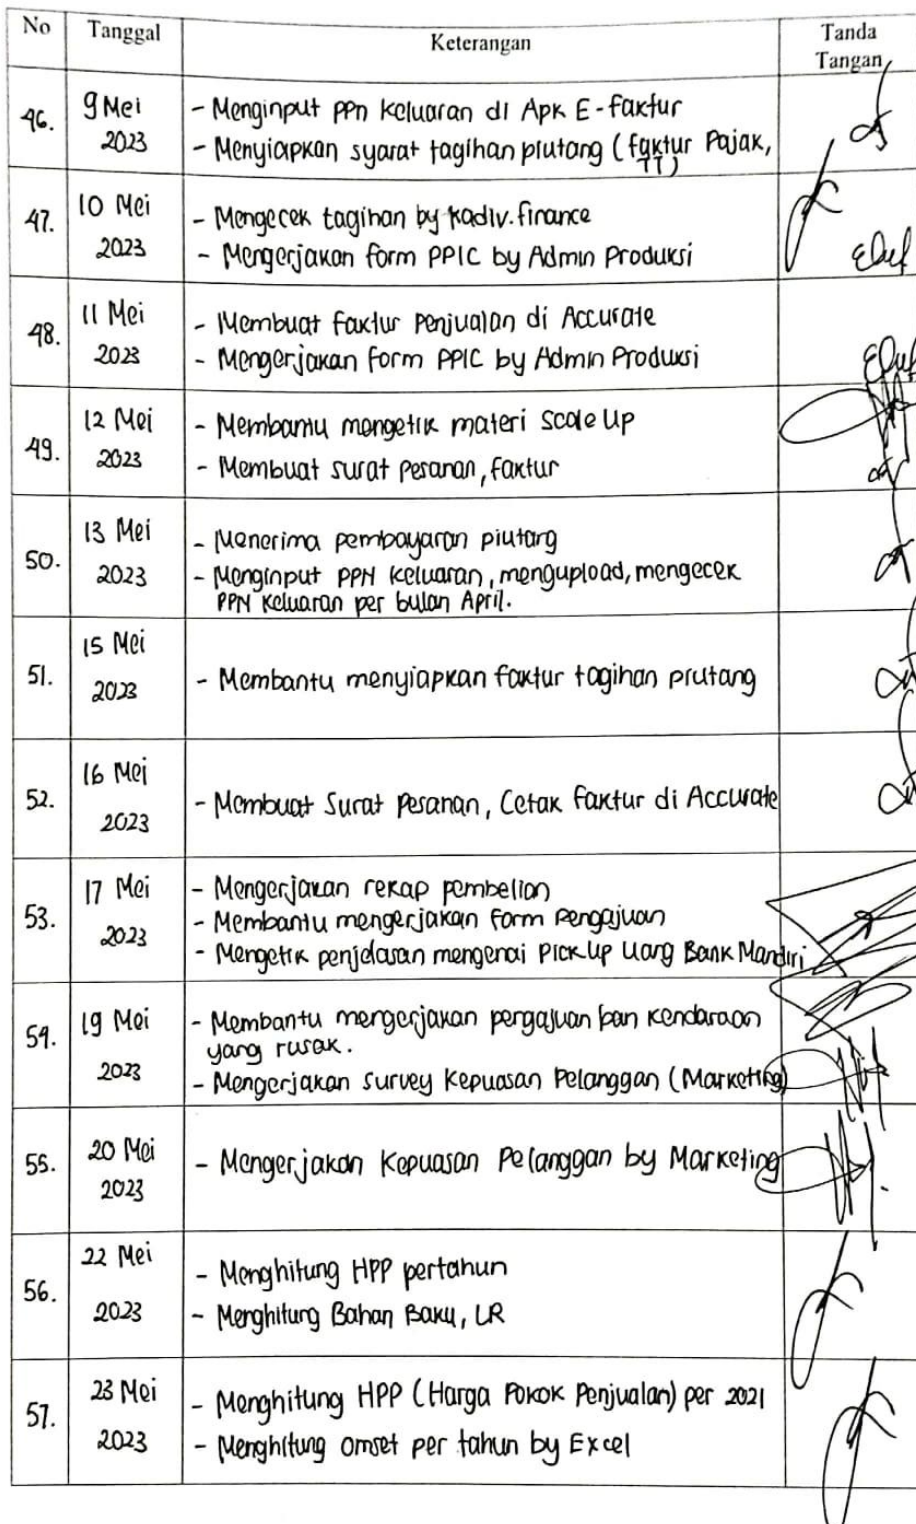 No Tanggal Keterangan Tanda Tangan
46. 9 Mei 2023
- Menginput PPn Keluaran di Apk E-faktur
- Menyiapkan syarat tagihan piutang (faktur Pajak,
TT)
47. 10 Mei 2023
- Mengecek tagihan by kadiv.finance
- Mengerjakan form PPIC by Admin Produksi
48. 11 Mei 2023
- Membuat faktur penjualan di Accurate
- Mengerjakan form PPIC by Admin Produksi
49. 12 Mei 2023
- Membantu mengetik materi Scale Up
- Membuat surat pesanan, faktur
50. 13 Mei 2023
- Menerima pembayaran piutang
- Menginput PPN Keluaran, mengupload, mengecek
PPN Keluaran per bulan April.
51. 15 Mei 2023
- Membantu menyiapkan faktur tagihan piutang
52. 16 Mei 2023
- Membuat Surat pesanan, Cetak faktur di Accurate
53. 17 Mei 2023
- Mengerjakan rekap pembelian
- Membantu mengerjakan form pengajuan
- Mengetik penjelasan mengenai Pick Up Uang Bank Mandiri
54. 19 Mei 2023
- Membantu mengerjakan pengajuan ban kendaraan
yang rusak.
- Mengerjakan survey Kepuasan Pelanggan (Marketing)
55. 20 Mei 2023
- Mengerjakan Kepuasan Pelanggan by Marketing
56. 22 Mei 2023
- Menghitung HPP pertahun
- Menghitung Bahan Baku, LR
57. 23 Mei 2023
- Menghitung HPP (Harga Pokok Penjualan) per 2021
- Menghitung omset per tahun by Excel